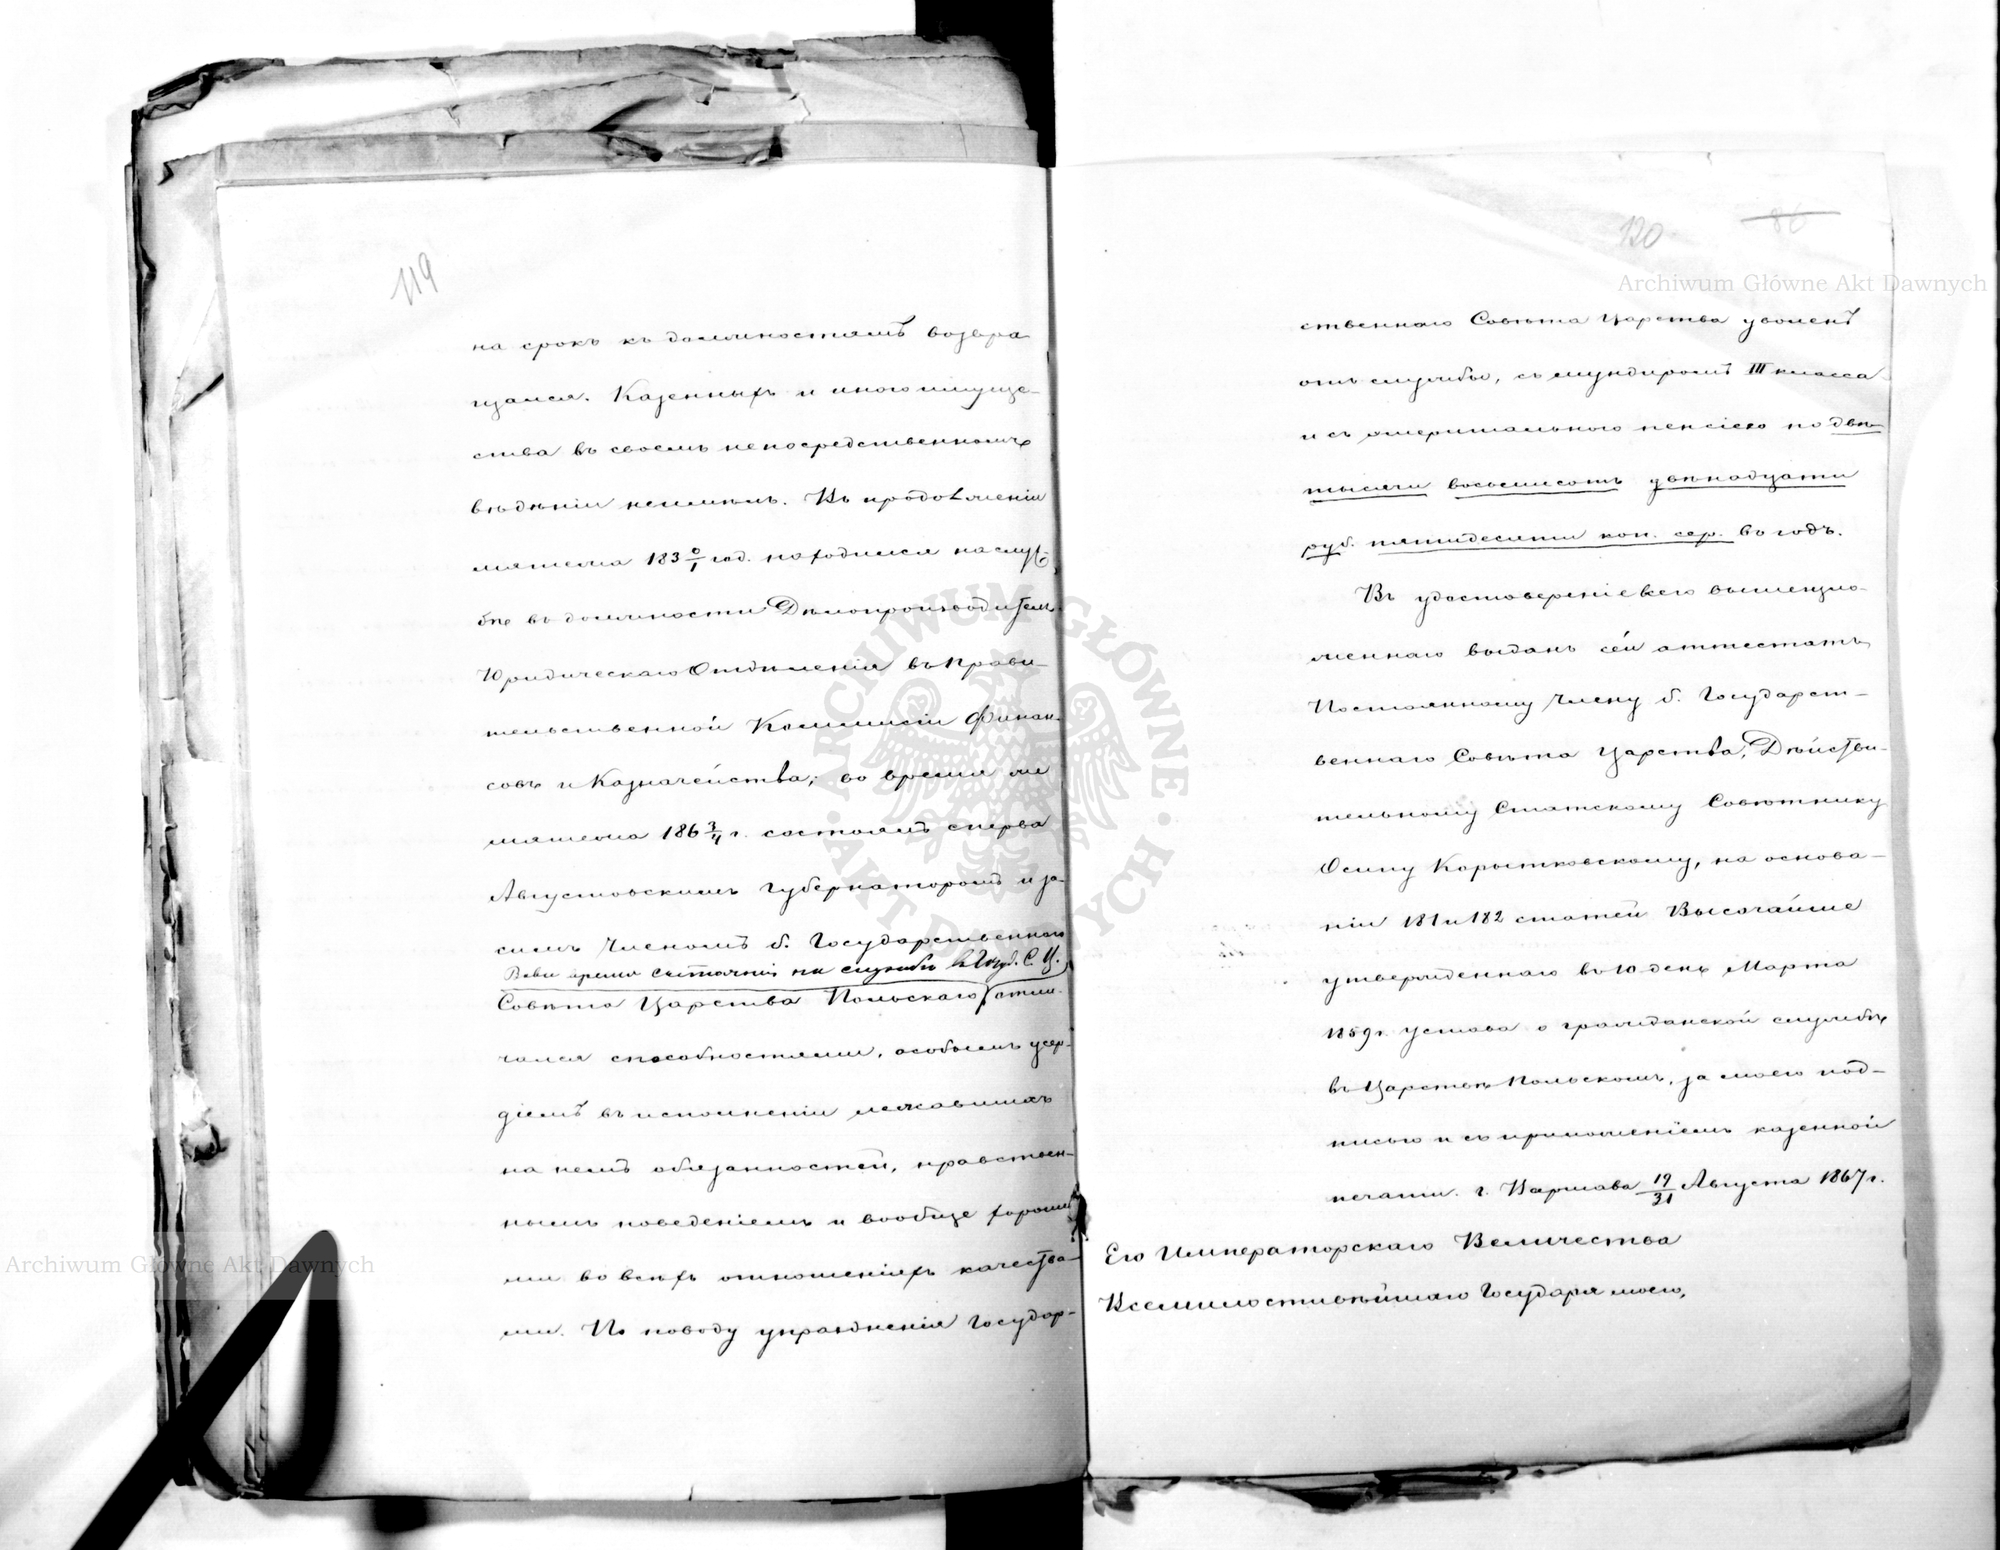 119
на срокъ къ должностямъ возвра
щался. Казенныхъ и иного имуще-
ства въ своемъ непосредственномъ
вѣдѣніи неимѣлъ. Въ продолженіи
мятежа 183 0/1 год. находился на служ-
бѣ въ должности Дѣлопроизводителя
Юридическаго Отдѣленія въ Прави-
тельственной Коммисіи Финан-
совъ и Казначейства; во время же
мятежа 186 3/4 г. состоялъ сперва
Августовскимъ Губернаторомъ и за-
симъ Членомъ б. Государственнаго
Во все время состоянія на службѣ въ Госуд. С. Ц.
Совѣта Царства Польскаго отли-
чался способностями, особымъ усер-
діемъ въ исполненіи лежавшихъ
на немъ обязанностей, нравствен-
нымъ поведеніемъ и вообще хороши
ми во всѣхъ отношеніяхъ качества-
ми. По поводу упраздненія Государ-
120 86
ственнаго Совѣта Царства уволенъ
отъ службы, съ мундиромъ III класса
и съ эмеритальною пенсіею по двѣ
тысячи восемьсотъ двѣнадцати
руб. пятидесяти коп. сер. въ годъ.
Въ удостовѣреніе всего вышеизло-
женнаго выданъ сей аттестатъ
Постоянному Члену б. Государст-
веннаго Совѣта Царства, Дѣйстви-
тельному Статскому Совѣтнику
Осипу Корытковскому, на основа-
ніи 181 и 182 статей Высочайше
утвержденнаго въ 10 день Марта
1859 г. устава о гражданской службѣ
въ Царствѣ Польскомъ, за моею под-
писью и съ приложеніемъ казенной
печати. г. Варшава 19/31 Августа 1867 г.
Его Императорскаго Величества
Всемилостивѣйшаго Государя моего,
Archiwum Główne Akt Dawnych
Archiwum Główne Akt Dawnych
ARCHIWUM GŁÓWNE AKT DAWNYCH